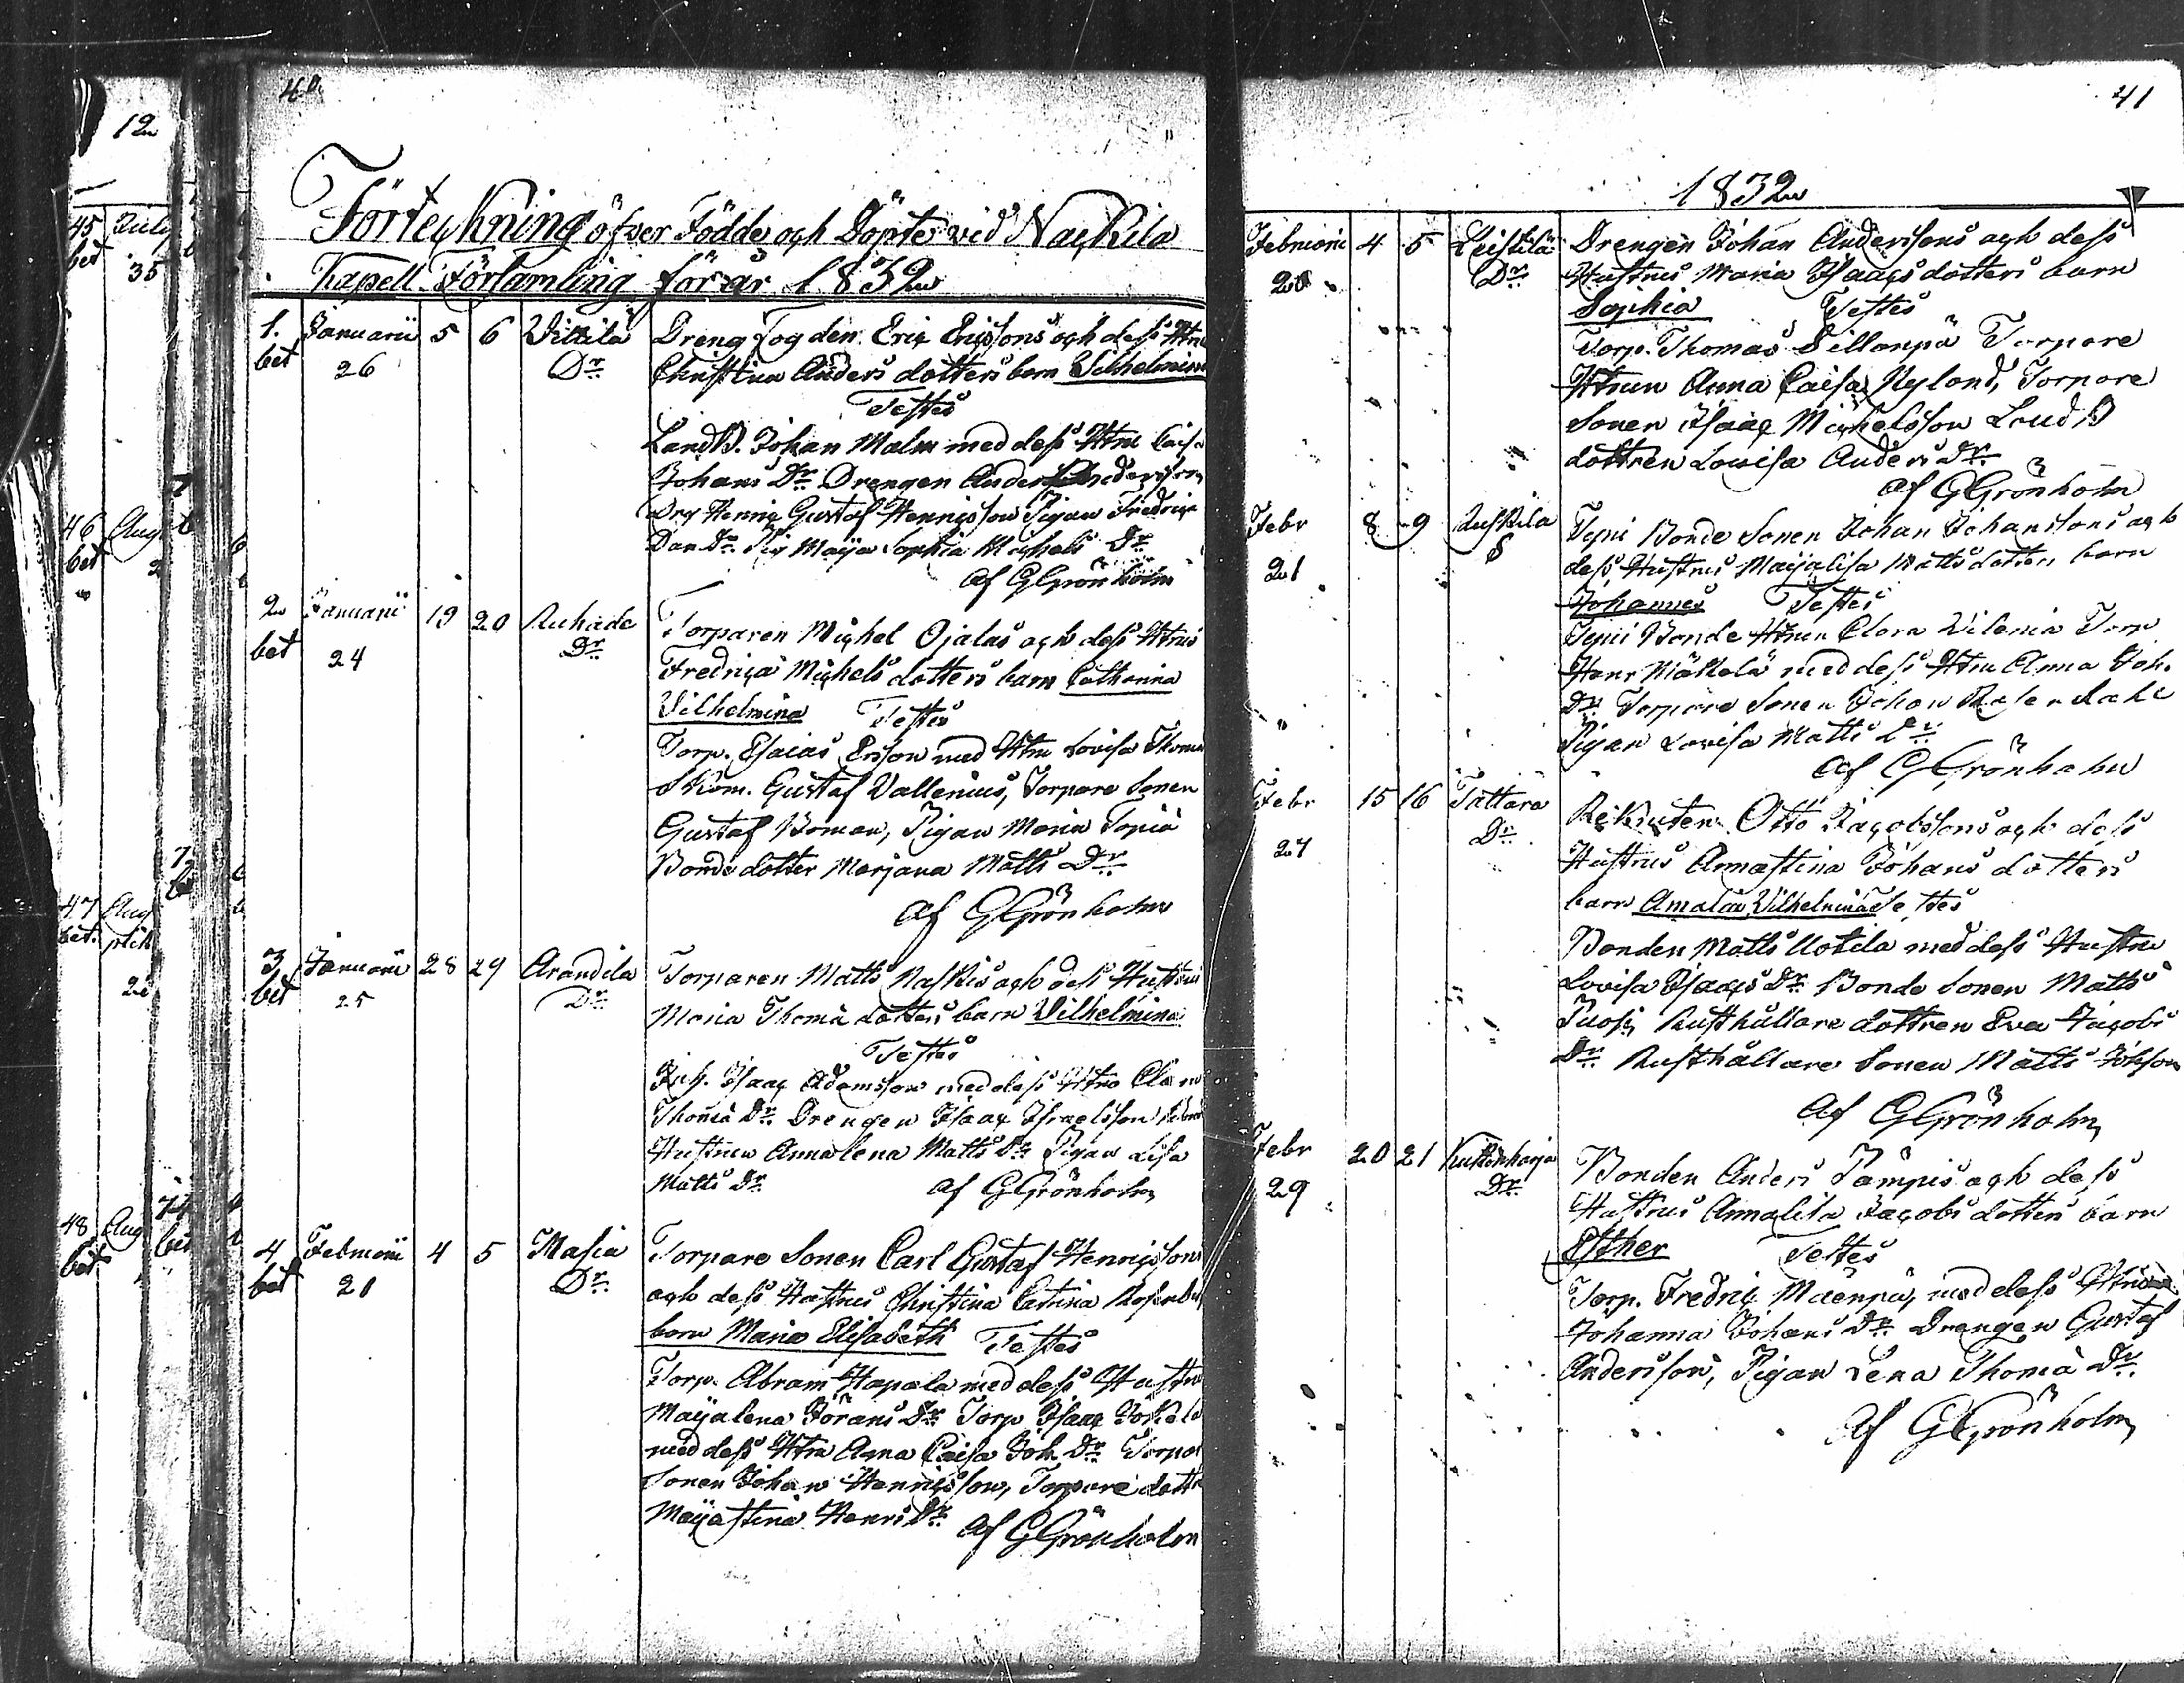 12
45 July
bet
35
46 Aug
bet
47 Aug
bet.
48 Aug
bet
40.
Förteckning öfver Födde och Döpte vid Nackila
Kapell Församling för år 1832
1. Januarii 5 6 Villila Dreng fogden Eric Ericssons och dess Htru
bet 26 Dr Christina Anders dotters barn Vilhelmina
Testes
LandtB. Johan Malm med dess Htru Caisa
Johans Dr Drengen Anders Andersson
Henric Gustaf Henricsson Pigan Fredrica
Dr. Pig Maija Sophia Michels Dr
Af G Grönholm
2 Januarii 19 20 Ruhade Torparen Michel Ojalas och dess Htrus
bet 24 Dr Fredrica Michels dotters barn Catharina
Vilhelmina Testes
Torp. Esaias Ersson med Htru Lovisa Thomæ
Skom. Gustaf Vallenius, Torpare Sonen
Gustaf Boman, Pigan Maria Topiä
Bonde dotter Marjana Matts Dr
Af G Grönholm
3 Januarii 28 29 Arandila Torparen Matts Naskis och dess Hustrus
bet 25 Dr Maria Thomæ dotters barn Vilhelmina
Testes
Inh. Isaac Adamsson med dess Htru Clara
Thomæ Dr Drengen Isaac Israelsson
Hustrun Annalena Matts Dr Pigan Lisa
Matts Dr Af G Grönholm
4 Februarii 4 5 Masia Torpare Sonen Carl Gustaf Henricssons
bet 21 Dr och dess Hustrus Christina Catrina
barn Maria Elisabeth Testes
Torp. Abram Hapala med dess Hustru
Maijalena Jörans Dr Torp Isaac Jokela
med dess Htru Anna Caisa Joh Dr Torpare
Sonen Johan Henricsson, Torpare dott
Maijastina Henrs Dr Af G Grönholm
41
1832
Februarii 4 5 Leistilä Drengen Johan Anderssons och dess
20 Dr Hustrus Maria Isaacs dotters barn
Sophia Testes
Torp. Thomas Sillanpä Torpare
Htrun Anna Caisa Nylond, Torpare
Sonen Isaac Michelsson LandtB
dottren Lovisa Anders Dr
Af G Grönholm
Febr 8 9 Bonde Sonen Johan Johanssons och
21 dess Hustrus Maijalisa Matts dotters barn
Johannes Testes
Bonde Htrun Clara Vilenia Torp
Henr Mälkelä med dess Htru Anna Joh.
Dr Torpare Sonen Johan
Pigan Lovisa Matts Dr
Af G Grönholm
Febr 15 16 Tattara Rekruten Otto Jacobssons och dess
27 Dr Hustrus Annastina Johans dotters
barn Amalia Vilhelmina Testes
Bonden Matts Uotila med dess Hustru
Lovisa Isaacs Dr Bonde Sonen Matts
Rusthållare dottren Eva Jacobs
Dr Rusthållare Sonen Matts Johsson
Af G Grönholm
Febr 20 21 Kukonharja Bonden Anders Pämpis och dess
29 Dr Hustrus Annalisa Jacobs dotters barn
Esther Testes
Torp. Fredric Mäenpä, med dess Htru
Johanna Johans Dr Drengen Gustaf
Andersson, Pigan Lena Thomæ Dr
Af G Grönholm